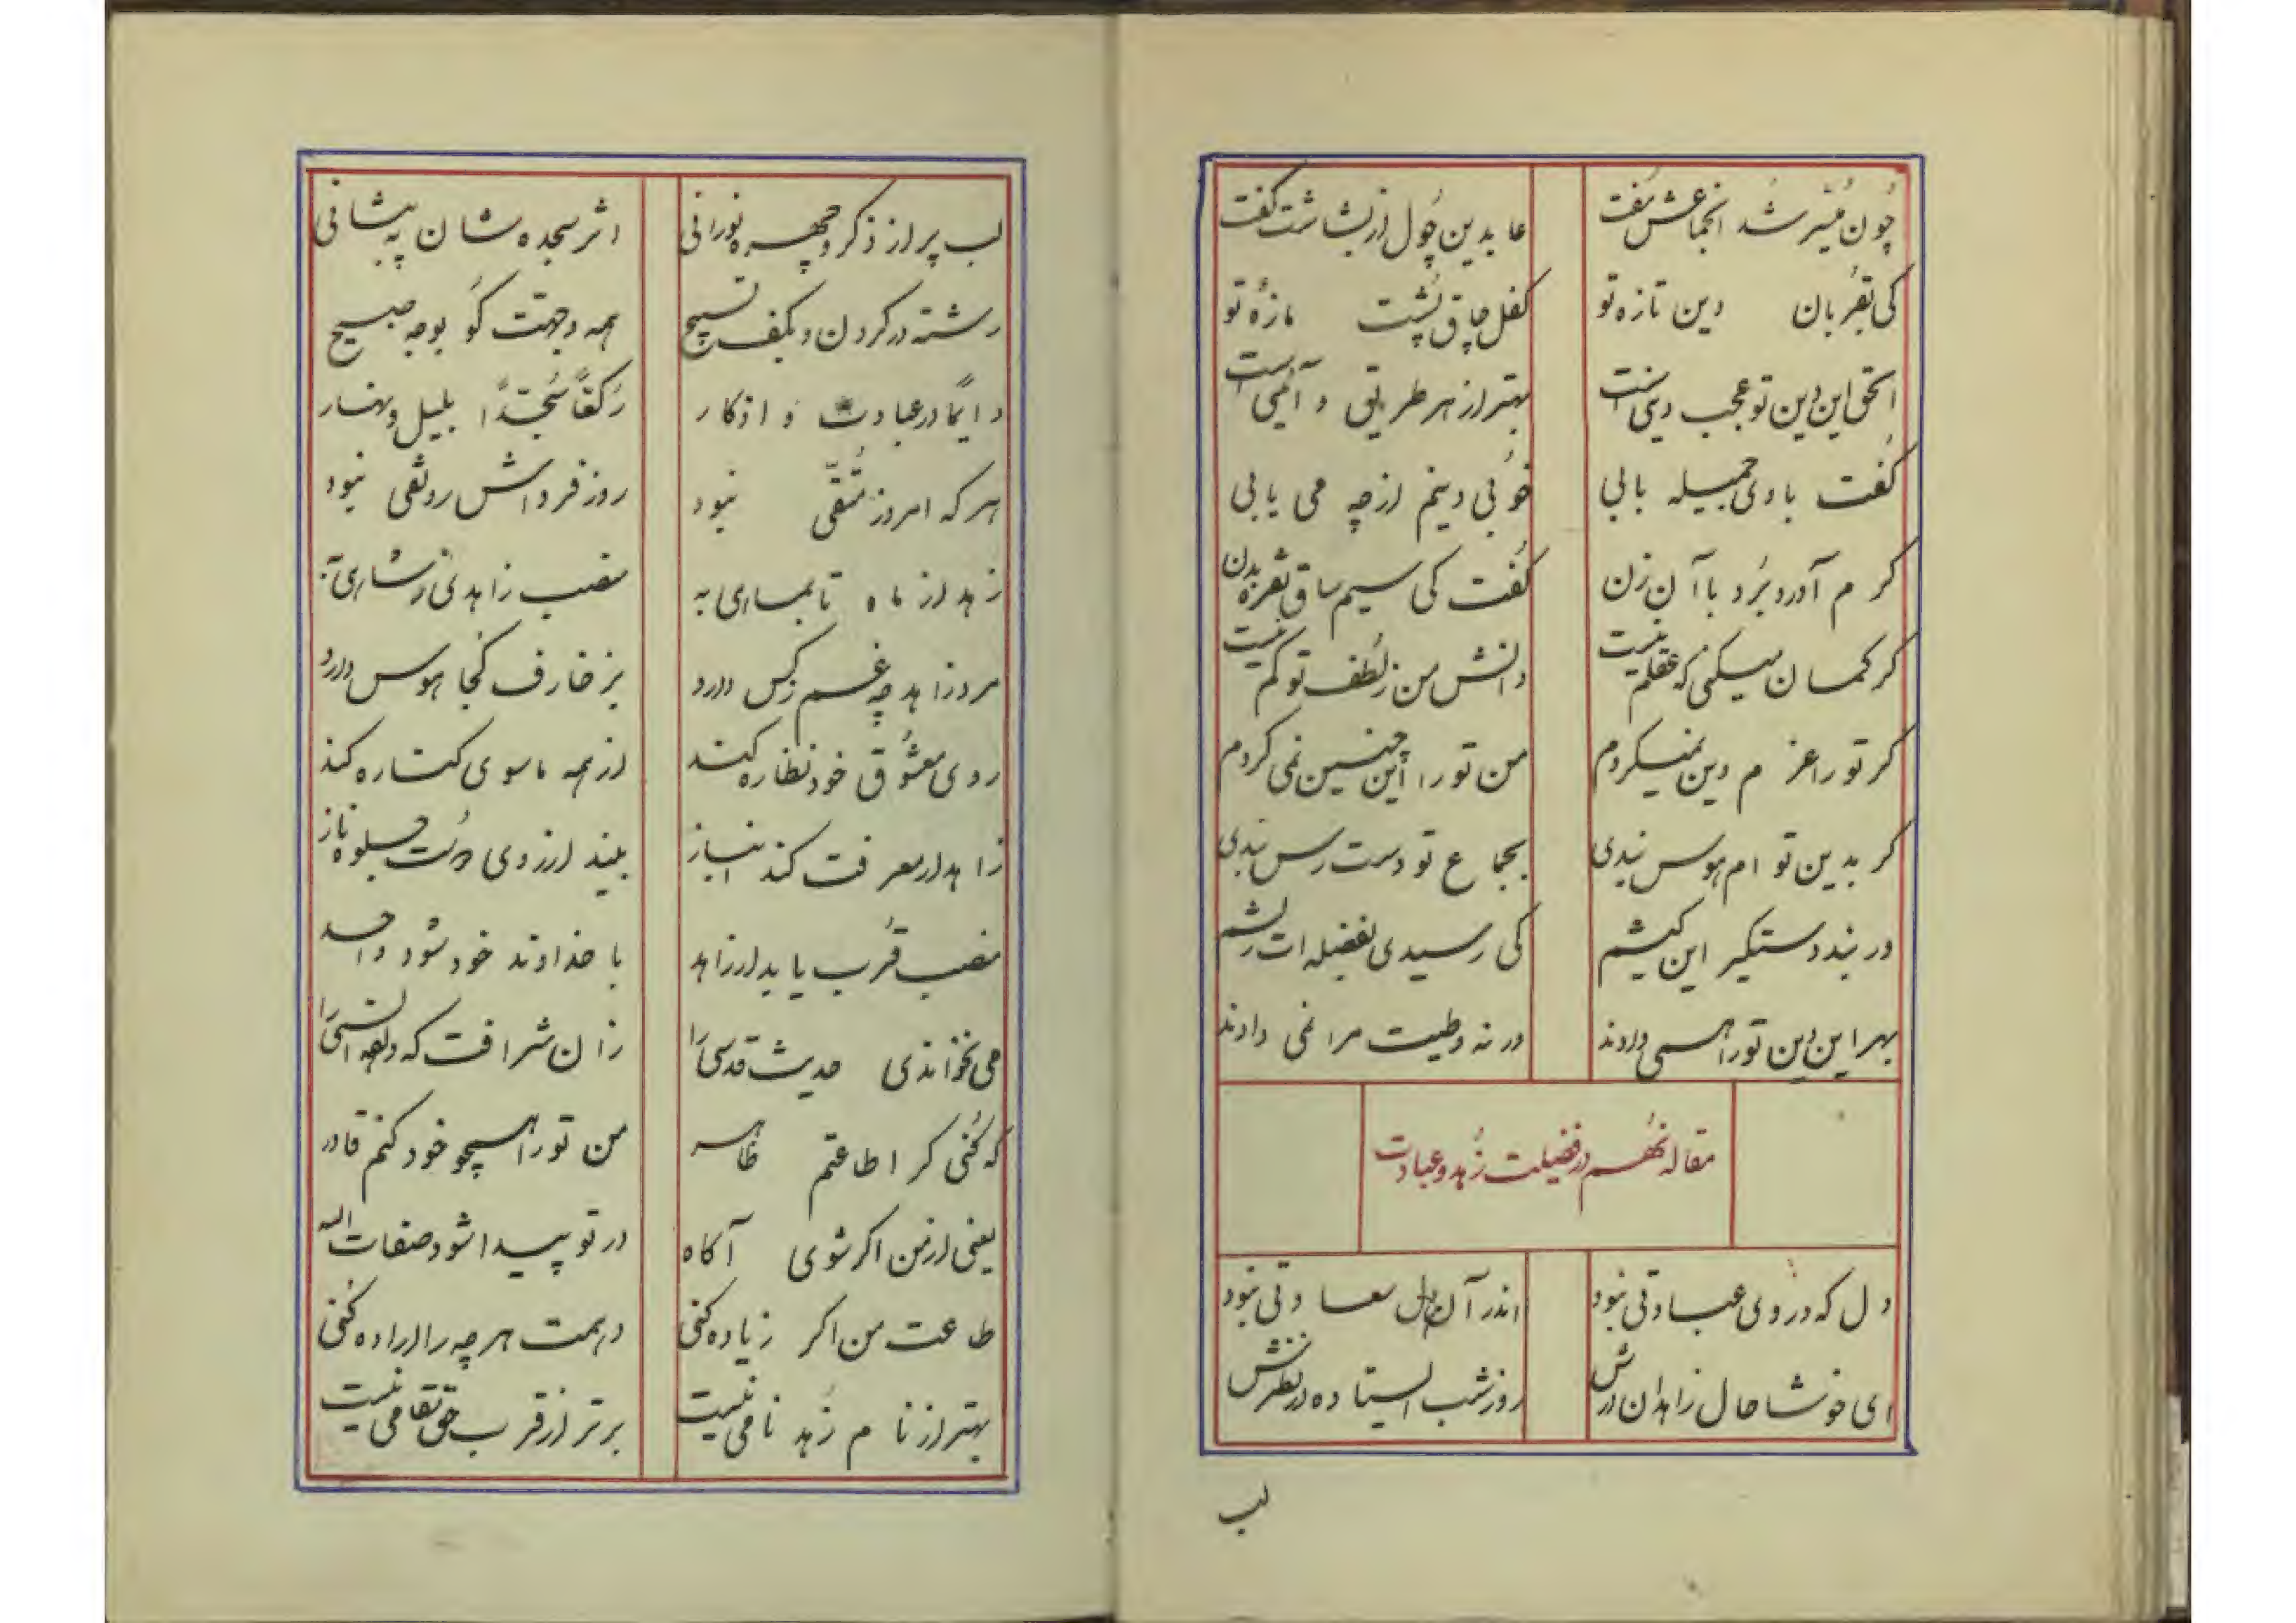 چون میسر شد انجماعش مفت
عابدین چول از بشاشت گفت
کی بقربان دین تازه تو
کفل چاق پشت مازهٔ تو
الحق این دین تو عجب دینی است
بهتر از هر طریق و آئینی است
گفت با وی جمیله بابی
خوبی دینم از چه می یابی
کر م آورد برد با آن زن
گفت کی سیم ساق نقره بدن
کر کمان میکنی که عقلم نیست
دانش من ز لطف تو کم نیست
کر تو را عز م دین نمیکردم
من تو را این چنین نمی کردم
کر بدین تو ام هوس نبدی
بجماع تو دست رس نبدی
در نبد دستکیر این کیشم
کی رسیدی بفضله ات ریشم
بهر این دین تو را همی دادند
ورنه وطیت مرا نمی دادند
مقاله نهم در فضیلت زهد و عبادت
دل که در وی عبادتی نبود
اندر آن دل سعادتی نبود
ای خوشا حال زاهدان درش
روز شب ایستاده در نظرش
لب
لب پر از ذکر و چهره نورانی
اثر سجده شان به پیشانی
رشته در کردن و بکف تسبیح
همه وجهت کو بوجه صبیح
دایما در عبادت و اذکار
رکعاً سجداً بلیل و نهار
هر که امروز متقی نبود
روز فرداش رونقی نبود
زهد از ماه تا بماری به
منصب زاهدی ز شاری به
مرد زاهد چه غم ز کس دارد
بزخارف کجا هوس دارد
روی معشوق خود نظاره کند
از همه ماسوی کناره کند
زاهد از معرفت کند انباز
بیند از روی دوست جلوه ناز
منصب قرب یابد ار زاهد
با خداوند خود شود واحد
می نخواندی حدیث قدسی را
زان شرافت که داده انسی را
که کنی کر اطاعتم ظاهر
من تو را همچو خود کنم قادر
یعنی از من اکر شوی آکاه
در تو پیدا شود صفات اله
طاعت من اکر زیاده کنی
دهمت هر چه را اراده کنی
بهتر از نا م زهد نامی نیست
برتر از قرب حق مقامی نیست